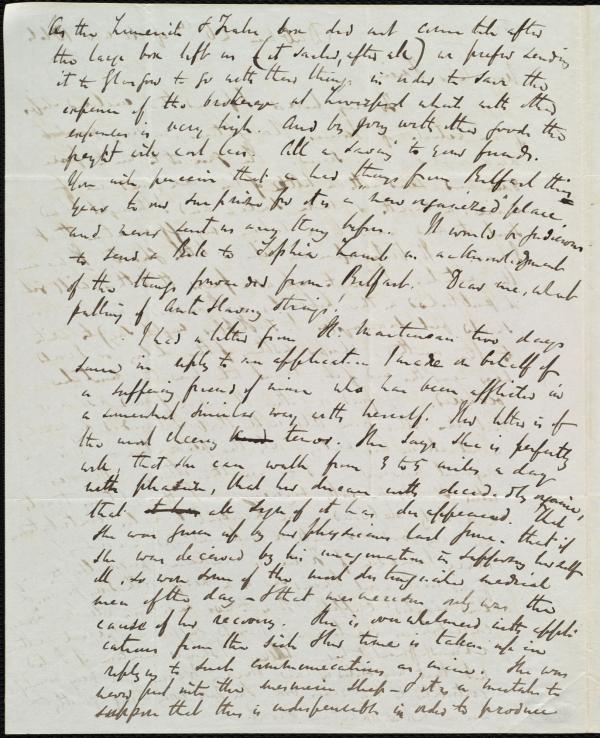 As the Limerick & Tralee box did not come till after
the large box left us (it sailed, after all) we prefer sending
it to Glasgow to go with their things in order to save the
expense of the brokerage at Liverpool which with other
expenses is very high. And by going with other goods the
freight will cost less. All a saving to your friends.
You will perceive that a few things from Belfast this
year to our surprise for it is a "new organized" place
and never sent us any thing before. It would be judicious
to send a Bell to Sophia Lamb in acknowledgment
of the things forwarded from Belfast. Dear me, what
pulling of Anti Slavery strings!
I had a letter from H. Martineau two days
since in reply to an application I made on behalf of
a suffering friend of mine who has been afflicted in
a somewhat similar way with herself. Her letter is of
the most cheery tenor. She says she is perfectly
well, that she can walk from 3 to 5 miles a day
with pleasure, that her disease was decidedly organic,
that all sign of it has disappeared. That
she was given up by her physicians last June. that if
she was deceived by her imagination in supposing herself
ill, so were some of the most distinguished medical
men of the day — & that mesmerism only was the
cause of her recovery. She is overwhelmed with appli
cations from the sick & her time is taken up in
replying to such communications as mine. She was
never put into the mesmeric sleep — & it is a mistake to
suppose that this is indispensible in order to produce